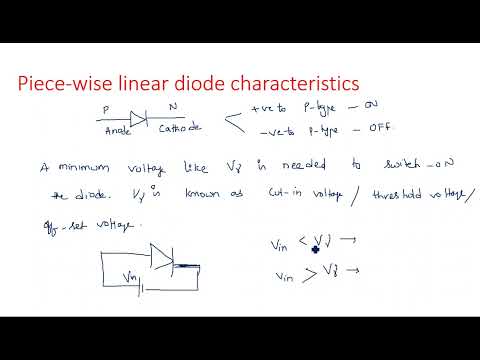 Piece-wise linear diode characteristics
P N
Anode Cathode
+ve to P-type - ON
-ve to P-type - OFF.
A minimum voltage like Vγ is needed to switch-ON
the diode. Vγ is known as cut-in voltage / threshold voltage /
off-set voltage.
Vin < Vγ →
Vin
Vin > Vγ →